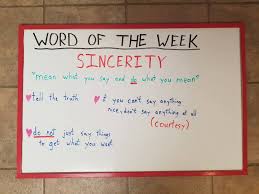 WORD OF THE WEEK
SINCERITY
"mean what you say and do what you mean"
tell the truth
if you can't say anything
nice, don't say anything at all
(courtesy)
do not just say things
to get what you want